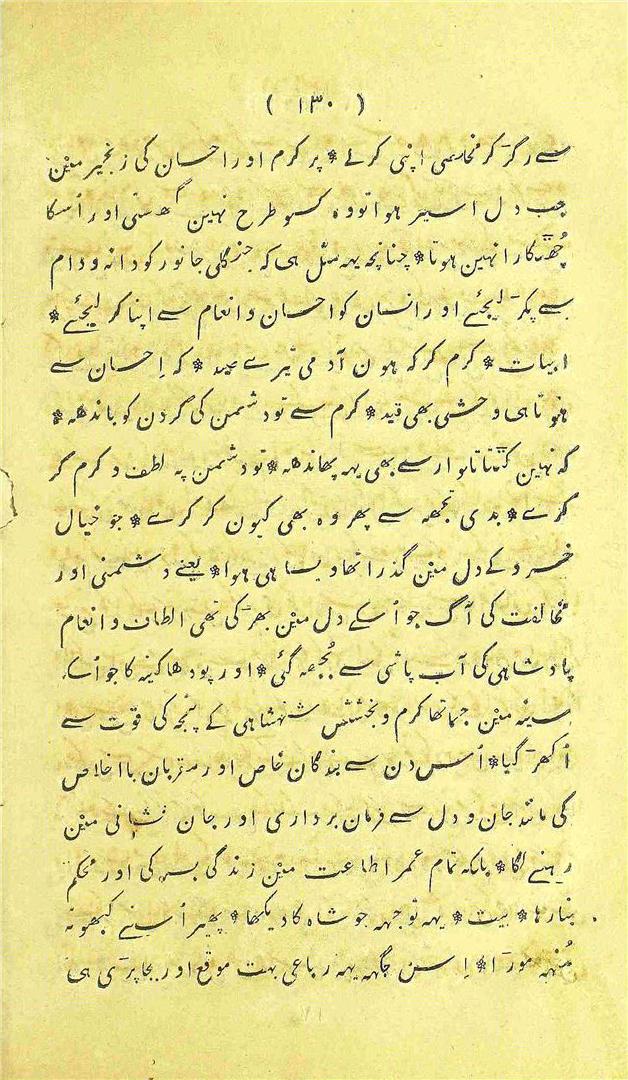 ( ۱۳۰ )
سے رگر کر مخلصی اپنی کرلے * پر کرم اور احسان کی زنجیر مین
جب دل اسیر ہوا تو وہ کسو طرح نہین گھستی اور اُسکا
چُھٹکارا نہین ہوتا * چنانچہ یہہ مثل ہی کہ جنگلی جانور کو دانہ و دام
سے پکر لیجئے اور انسان کو احسان و انعام سے اپنا کر لیجئے *
ابیات * کرم کر کہ ہون آدمی تیرے صید * کہ اِحسان سے
ہوتا ہی وحشی بھی قید * کرم سے تو دشمن کی گردن کو باندھہ *
کہ نہین کٹتا تلوار سے بھی یہہ پھاندھہ * تو دشمن پہ لطف و کرم گر
کرے * بدی تجھہ سے پھر وہ بھی کیون کر کرے * جو خیال
خسرو کے دل مین گذرا تھا ویسا ہی ہوا * یعنے دشمنی اور
مخالفت کی آگ جو اُسکے دل مین بھرکی تھی الطاف و انعام
پادشاہی کی آب پاشی سے بُجھہ گئی * اور پودھا کینہ کا جو اُسکے
سینہ مین جما تھا کرم و بخشش شہنشاہی کے پنجہ کی قوت سے
اُکھر گیا * اُس دن سے بندگان خاص اور مقربان بااخلاص
کی مانند جان و دل سے فرمان برداری اور جان فشانی مین
رہنے لگا * بلکہ تمام عمر اطاعت مین زندگی بسر کی اور محکم
بنا رہا * بیت * یہہ توجہہ جو شاہ کا دیکھا * پھیر اُسنے کبھو نہ
مُنہہ مورا * اِس جگہہ یہہ رباعی بہت موقع اور بجا پری ہی